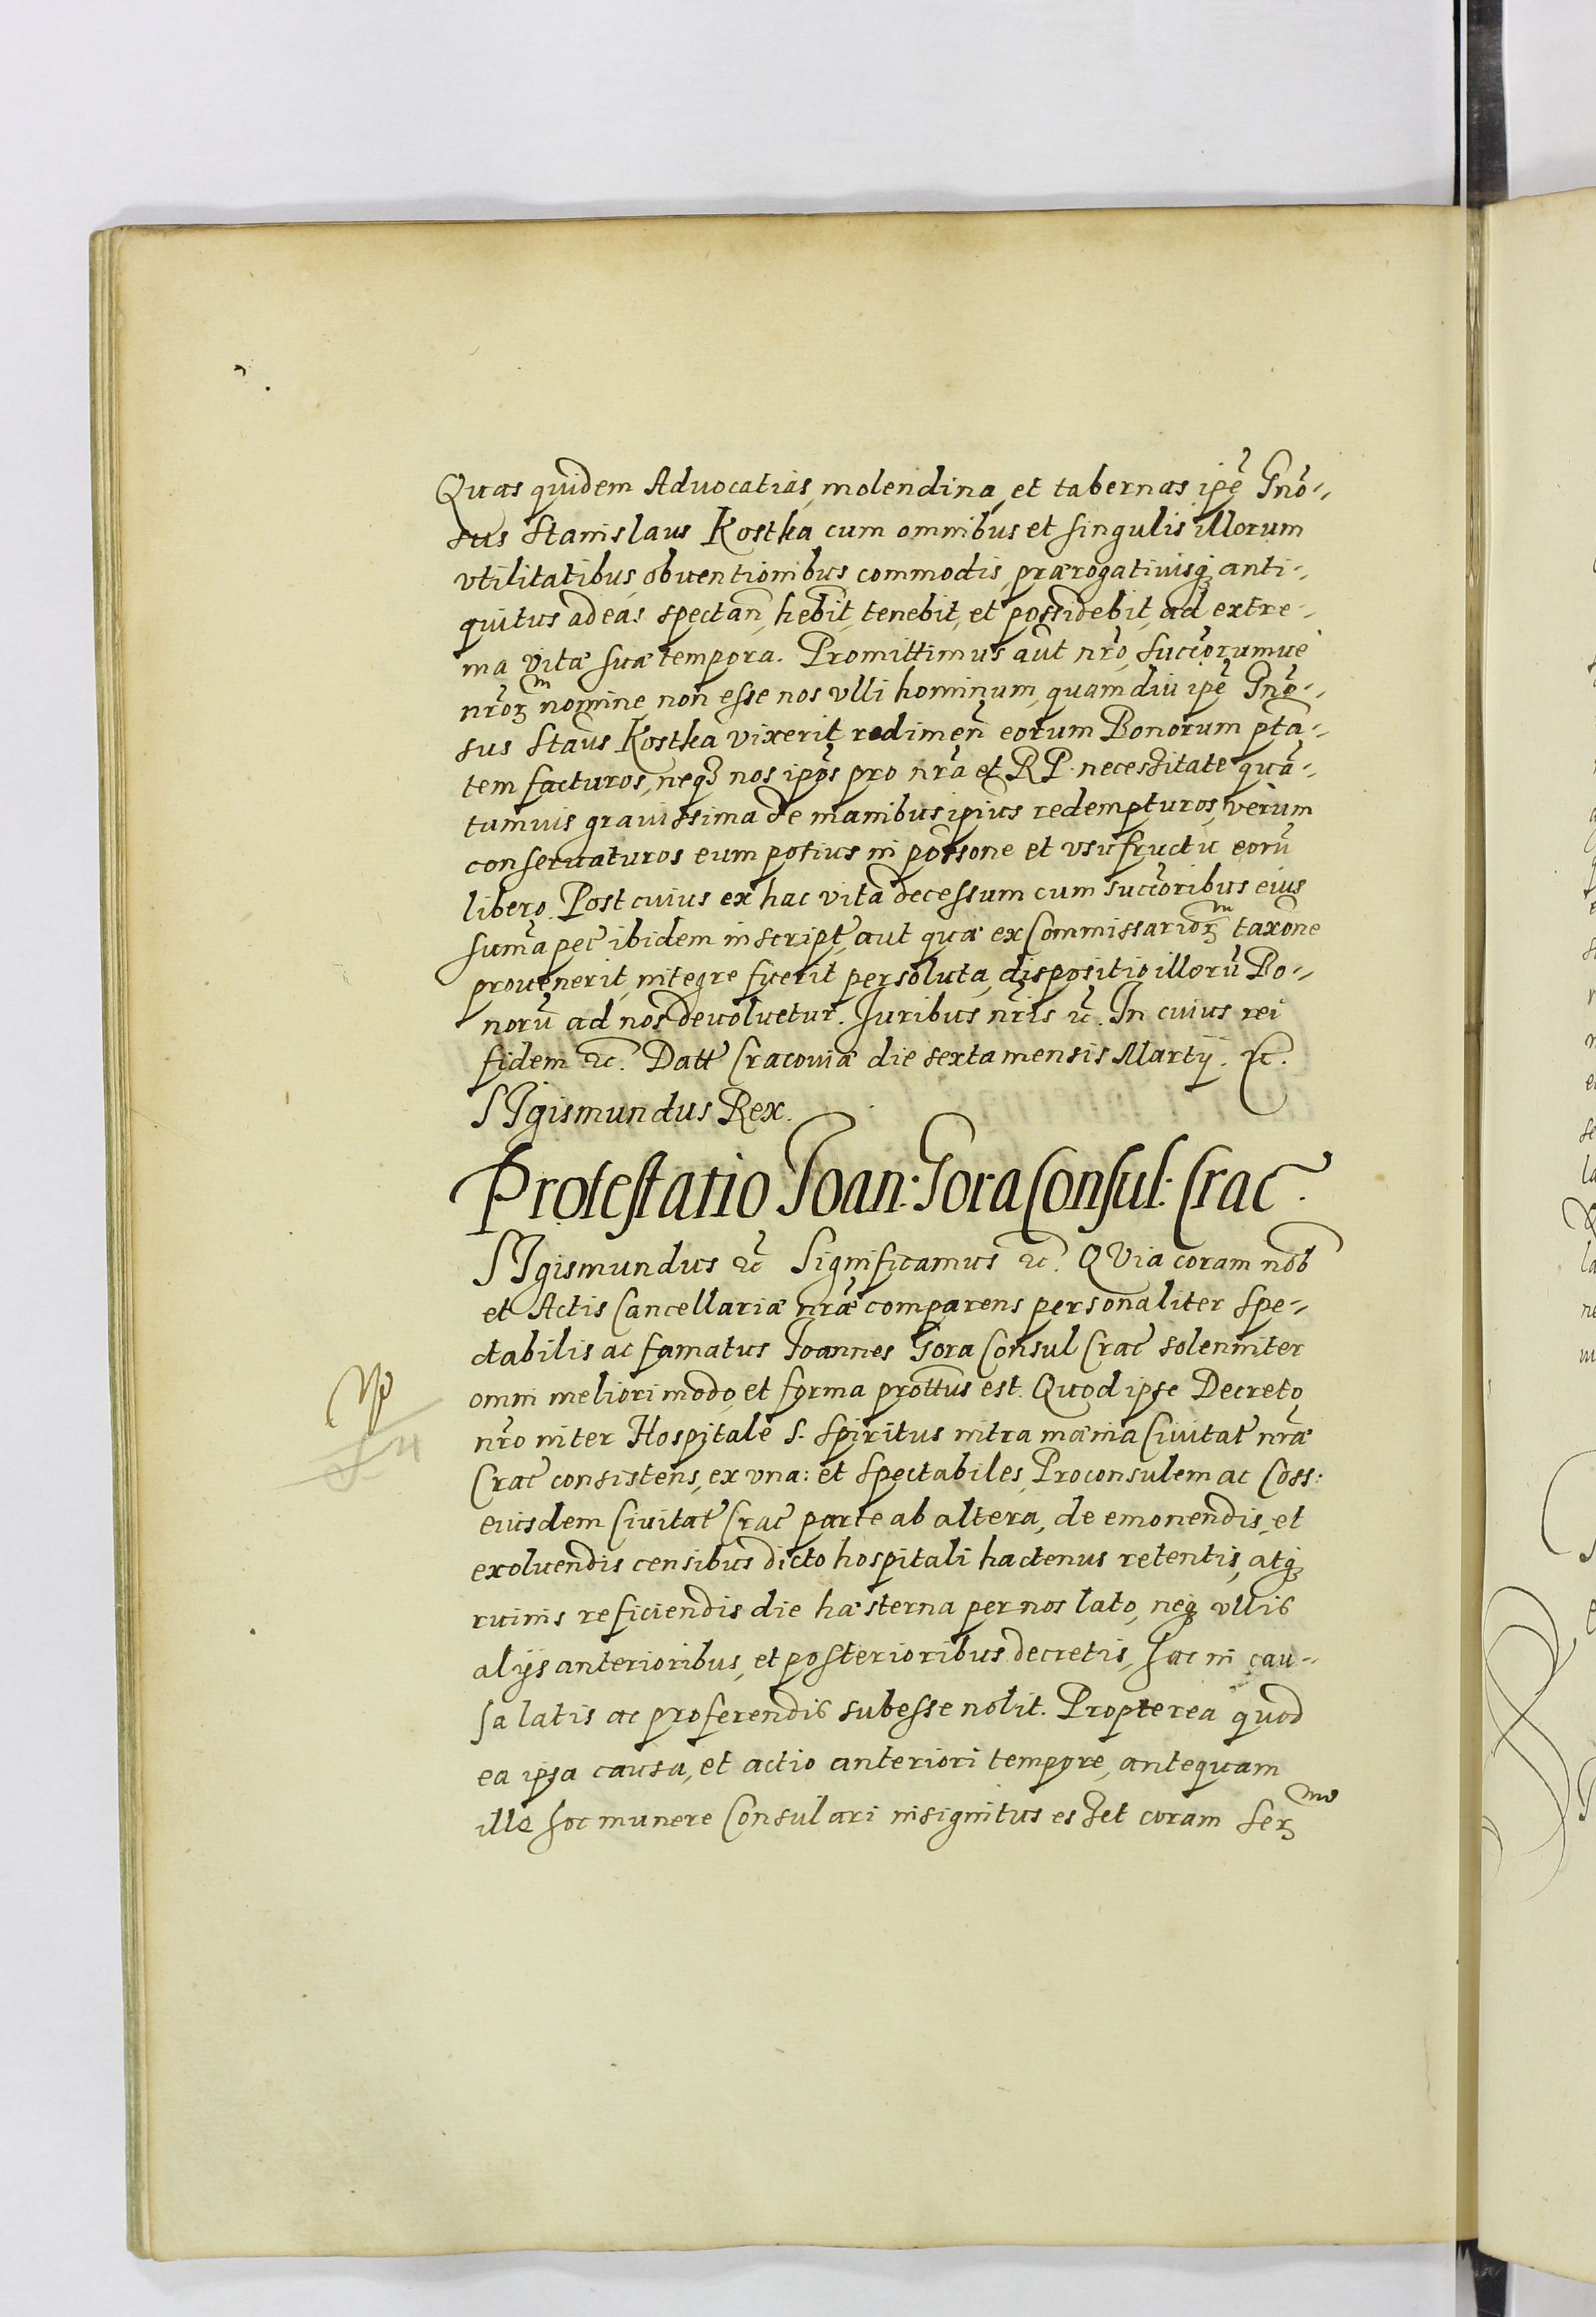 Quas quidem Advocatias, molendina, et tabernas ipẽ Gnõ-
sus Stanislaus Kostka cum omnibus et singulis illorum
vtilitatibus, obuentionibus, commodis, prærogatiuisq́ anti-
quitus ad eas spectañ, hebit, tenebit, et possidebit, ad extre-
ma vitæ suæ tempora. Promittimus aũt nr̃o, succ̃orumue
nr̃oꝝ nomine, non esse nos vlli hominum, quamdiu ipẽ Gnõ-
sus Stañs Kostka vixerit redimeñ eorum Bonorum ptã-
tem facturos, neqꝫ nos ipõs pro nr̃a et R P. necessitate quã-
tumuis grauissima de manibus ipius redempturos, verum
conseruaturos eum potius in possone et vsufructu eorũ
libero. Post cuius ex hac vita decessum cum succ̃oribus eius
sum̃a pec̃ ibidem inscript, aut quæ ex Commissarioꝝ taxõne
prouenerit, integre fuerit persoluta, dispositio illorũ Bo-
norũ ad nos deuoluetur. Juribus nr̃is ⁊c̃. In cuius rei
fidem ⁊c. Datt Cracouiæ die sexta mensis Martij. ⁊c.
SIgismundus Rex.
Protestatio Joan: Gora Consul: Crac.
SIgismundus ⁊c̃ Significamus ⁊c. QVia coram nob
et Actis Cancellariæ nr̃æ comparens personaliter Spe-
ctabilis ac famatus Joannes Gora Consul Crac̃ solenniter
omni meliori modo, et forma prottus est. Quod ipse Decreto
nr̃o inter Hospitale S. Spiritus intra mænia Ciuitat nr̃æ
Crac̃ consistens, ex vna: et Spectabiles, Proconsulem ac Coss:
eiusdem Ciuitat Crac̃ parte ab altera, de emonendis, et
exoluendis censibus dicto hospitali hactenus retentis, atqꝫ
ruinis reficiendis die hæsterna per nos lato, neqꝫ vllis
alijs anterioribus, et posterioribus decretis, hac in cau-
sa latis ac proferendis subesse nolit. Propterea quod
ea ipsa causa, et actio anteriori tempore, antequam
ille hoc munere Consulari insignitus esset coram Serꝫ mo